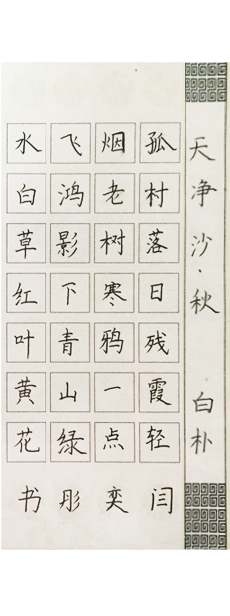 天净沙·秋 白朴
孤村落日残霞轻
烟老树寒鸦一点
飞鸿影下青山绿
水白草红叶黄花
闫奕彤书